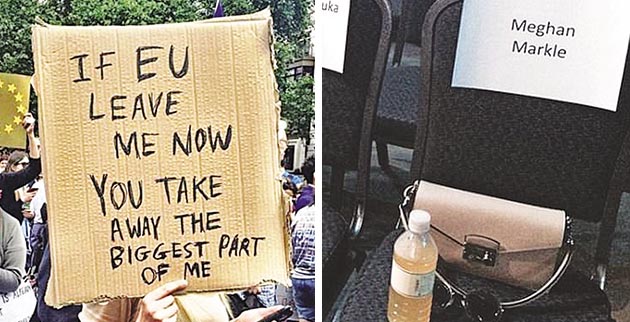 IF EU
LEAVE
ME NOW
YOU TAKE
AWAY THE
BIGGEST PART
OF ME
uka
Meghan
Markle